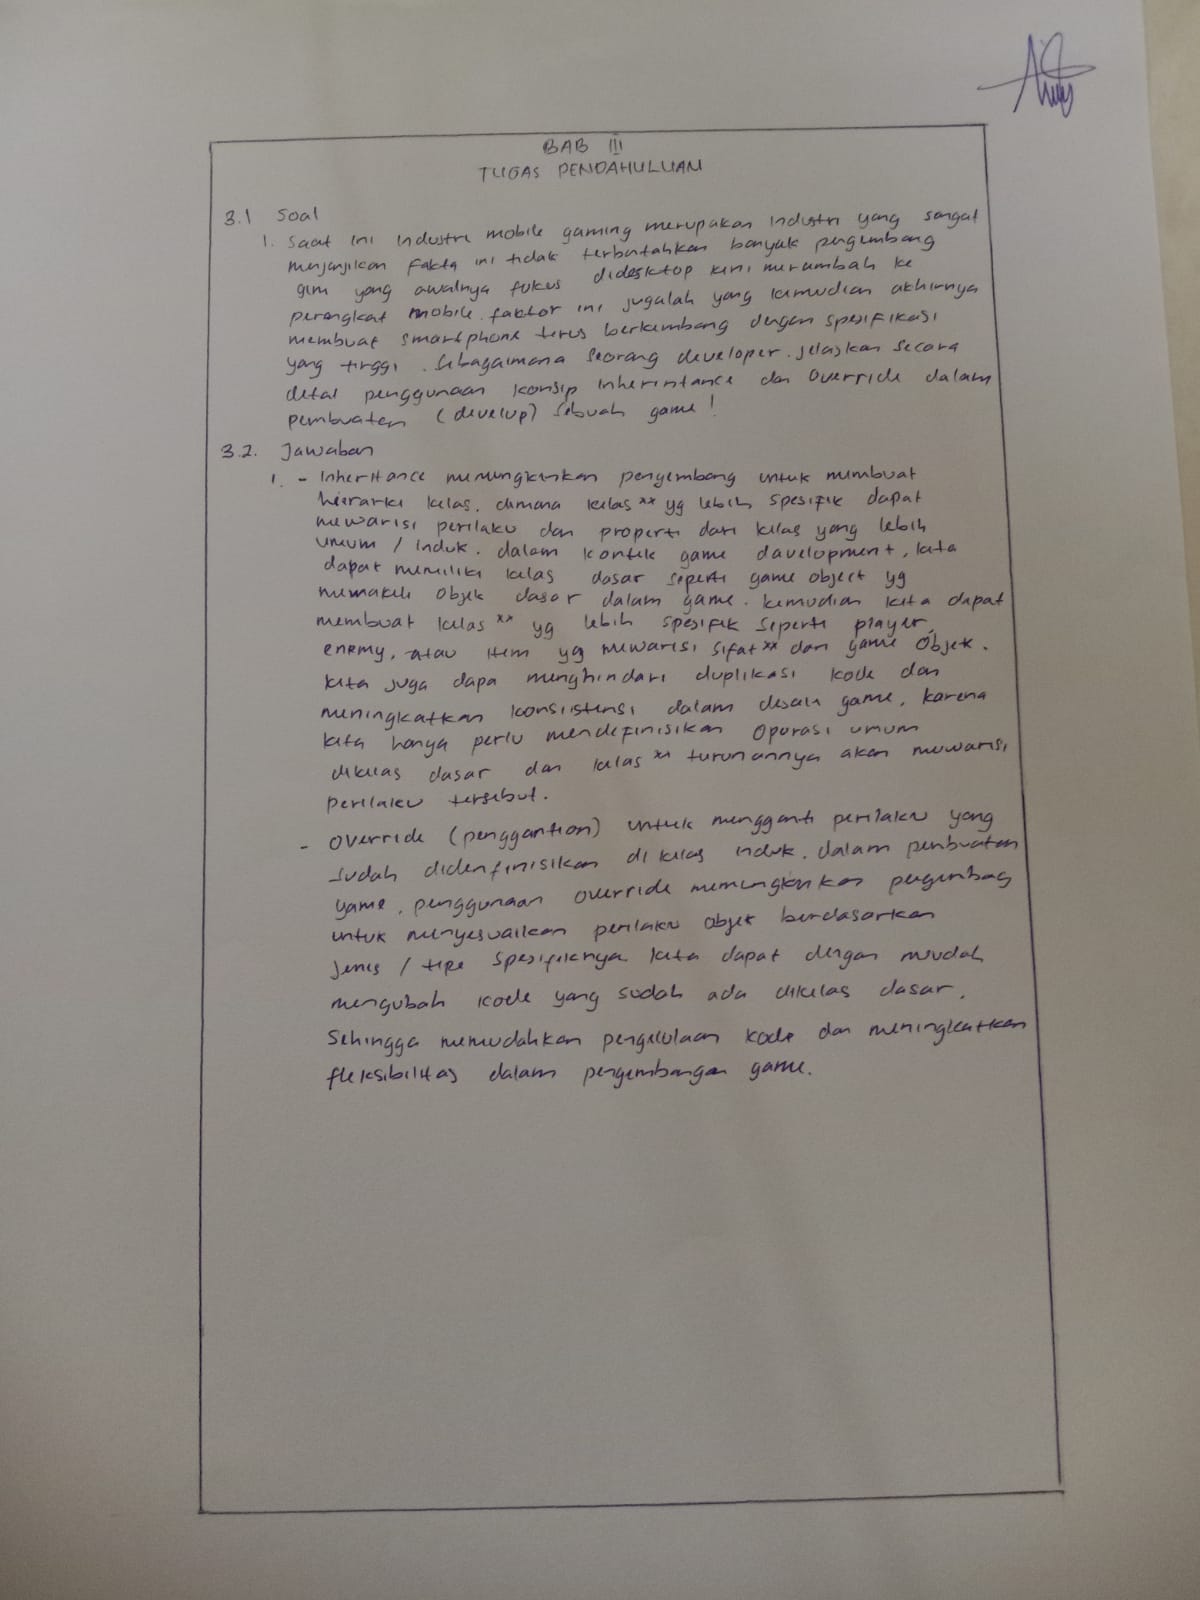 BAB III
TUGAS PENDAHULUAN
3.1 Soal
1. Saat ini industri mobile gaming merupakan industri yang sangat
menjanjikan fakta ini tidak terbatahkan banyak pengembang
gim yang awalnya fokus didesktop kini merambah ke
perangkat mobile. faktor ini jugalah yang kemudian akhirnya
membuat smartphone terus berkembang dengan spesifikasi
yang tinggi. Sebagaimana seorang developer. jelaskan secara
detal penggunaan konsep inherintance dan override dalam
pembuatan (develup) sebuah game!
3.2. Jawaban
1. - Inheritance memungkinkan pengembang untuk membuat
hierarki kelas, dimana kelas** yg lebih spesifik dapat
mewarisi perilaku dan properti dari kelas yang lebih
umum / induk. dalam kontek game davelopment, kita
dapat memiliki kelas dasar seperti game object yg
memakili objek dasar dalam game. kemudian kita dapat
membuat kelas** yg lebih spesifik seperti player,
enemy, atau item yg mewarisi sifat** dari game objek.
kita juga dapa menghindari duplikasi kode dan
meningkatkan konsistensi dalam desain game, karena
kita hanya perlu mendefinisikan operasi umum
dikelas dasar dan kelas** turunannya akan mewarisi
perilaku tersebut.
- override (penggantian) untuk mengganti perilaku yang
sudah didenfinisikan di kelas induk. dalam penbuatan
game, penggunaan override memungkinkan pegembag
untuk menyesuaikan perilaku objek berdasarkan
jenis / tipe spesifiknya kita dapat dengan muudah
mengubah kode yang sudah ada dikelas dasar.
Sehingga memudahkan pengelolaan kode dan meningkatkan
fleksibilitas dalam pengembangan game.